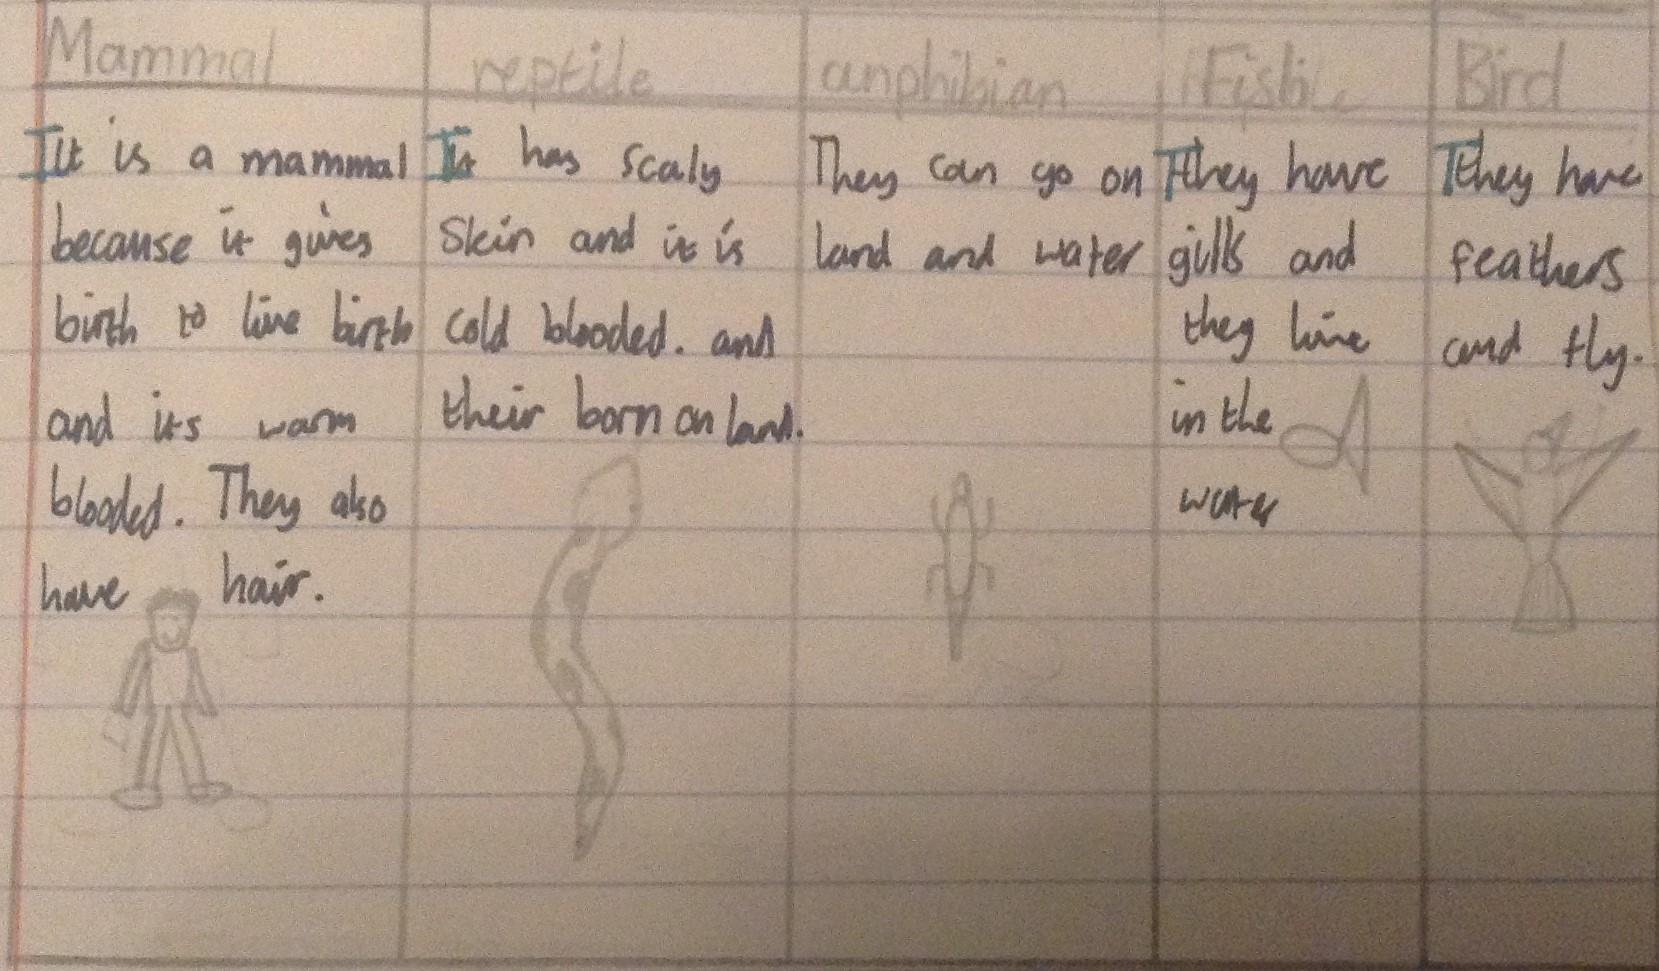 Mammal
It is a mammal
because it gives
birth to live birth
and its warm
blooded. They also
have hair.
reptile
It has scaly
Skin and it is
cold blooded. and
their born on land.
anphibian
They can go on
land and water
Fish
They have
gills and
they live
in the
water
Bird
They have
feathers
and fly.